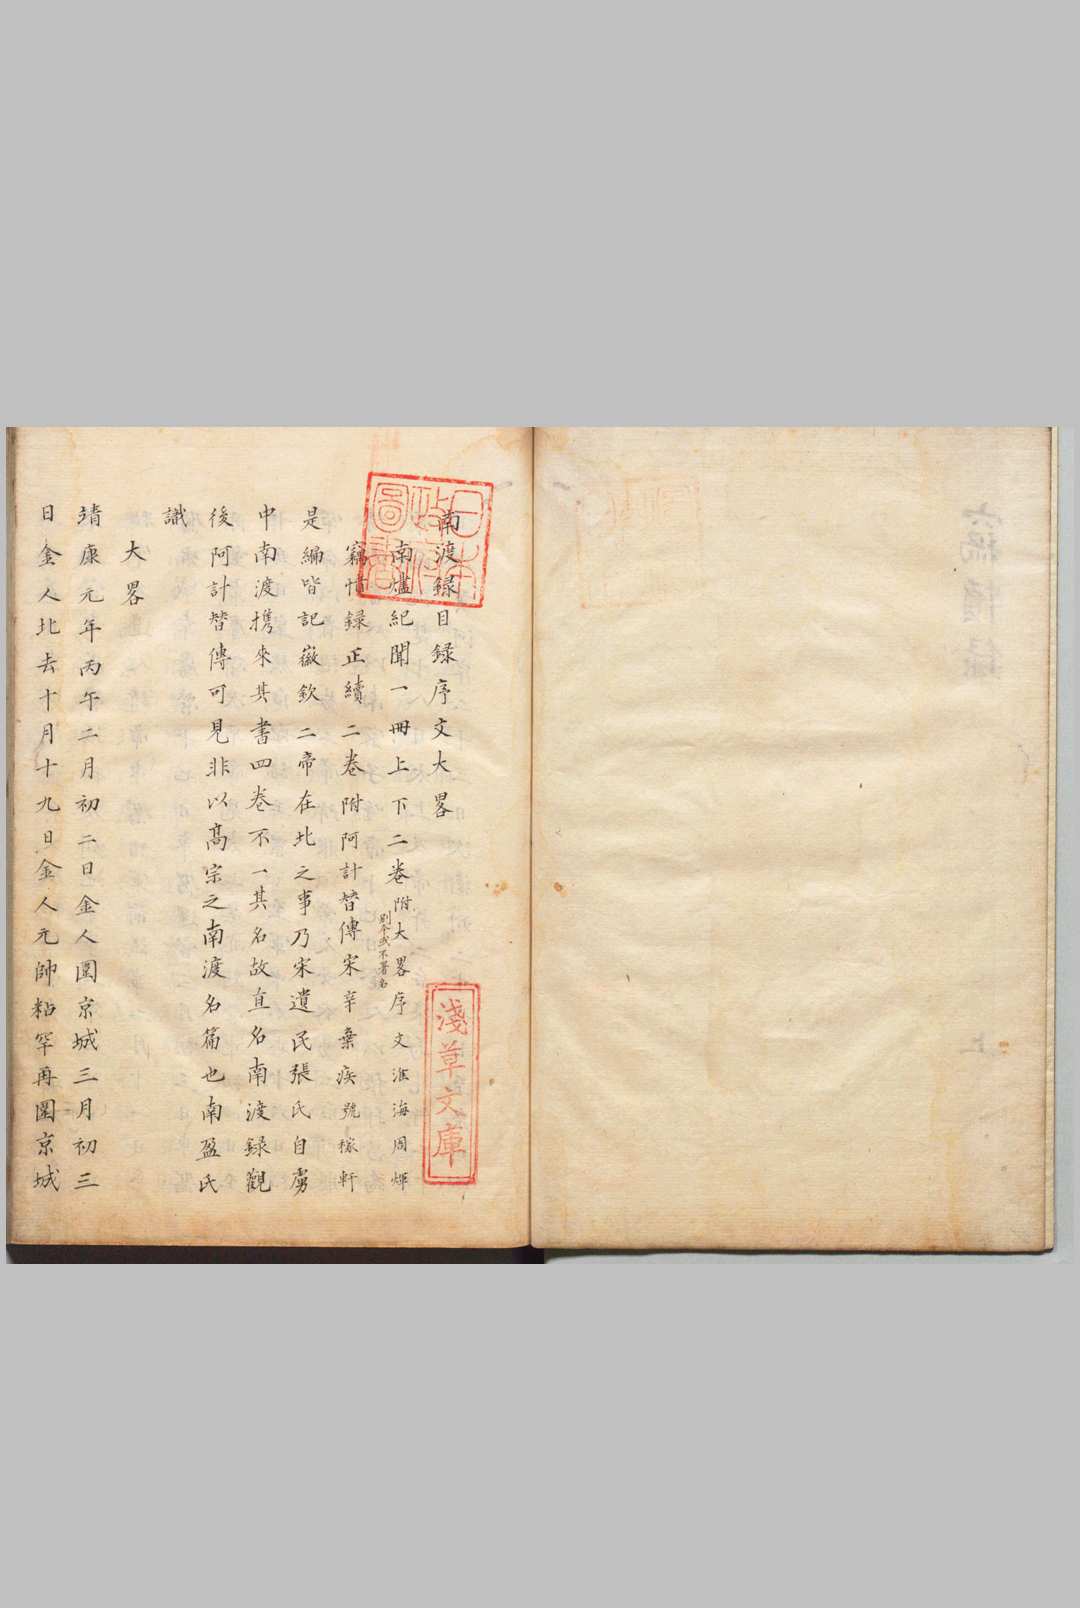 南渡録目録序文大畧
南燼紀聞一冊上下二巻附大畧序文淮海周煇
竊憤録正續二巻附阿計替傳宋辛棄疾號稼軒
別本或不署名
是編皆記徽欽二帝在北之事乃宋遺民張氏自虜
中南渡携來其書四巻不一其名故直名南渡録觀
後阿計替傳可見非以髙宗之南渡名篇也南盈氏
識
大畧
靖康元年丙午二月初二日金人圍京城三月初三
日金人北去十月十九日金人元帥粘罕再圍京城
日本政府圖書
淺草文庫